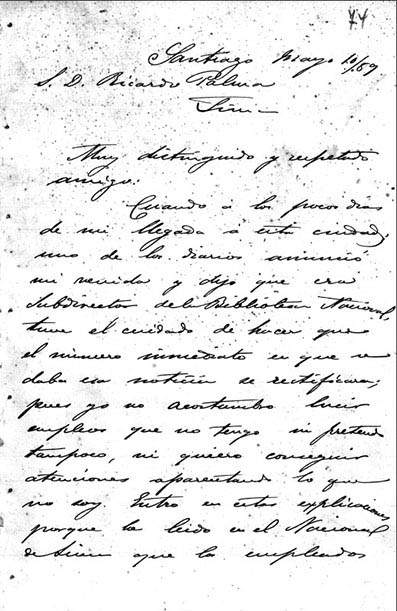 74
Santiago Mayo 10/89
S. D. Ricardo Palma
Lima
Muy distinguido y respetado
amigo:
Cuando á los pocos dias
de mi llegada á esta ciudad,
uno de los diarios anunció
mi venida y dijo que era
Subdirector de la Biblioteca Nacional,
tuve el cuidado de hacer que
el número inmediato en que se
daba esa noticia se rectificára;
pues yo no acostumbro lucir
empleos que no tengo ni pretendo
tampoco, ni quiero conseguir
atenciones aparentando lo que
no soy. Entro en estas explicaciones
porque he leido en el Nacional
de Lima que los empleados